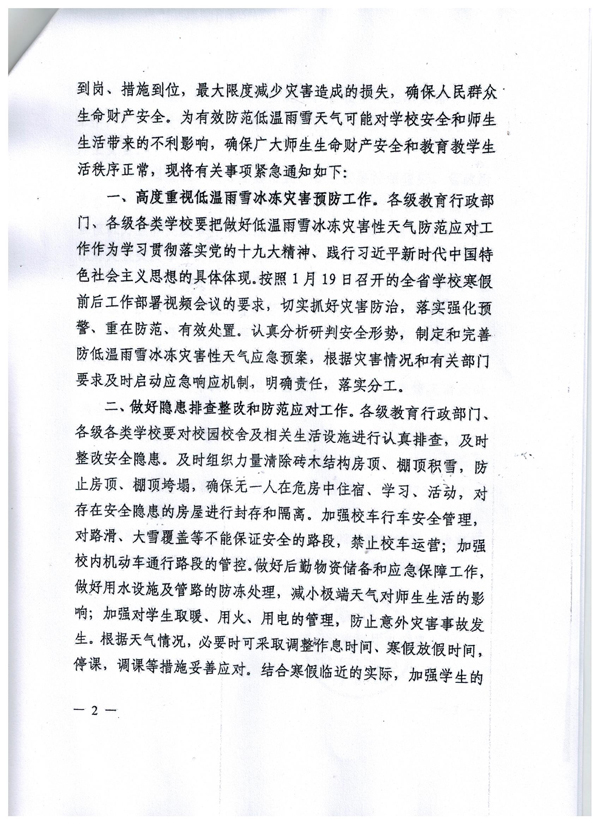 到岗、措施到位，最大限度减少灾害造成的损失，确保人民群众
生命财产安全。为有效防范低温雨雪天气可能对学校安全和师生
生活带来的不利影响，确保广大师生生命财产安全和教育教学生
活秩序正常，现将有关事项紧急通知如下：
一、高度重视低温雨雪冰冻灾害预防工作。各级教育行政部
门、各级各类学校要把做好低温雨雪冰冻灾害性天气防范应对工
作作为学习贯彻落实党的十九大精神、践行习近平新时代中国特
色社会主义思想的具体体现。按照1月19日召开的全省学校寒假
前后工作部署视频会议的要求，切实抓好灾害防治，落实强化预
警、重在防范、有效处置。认真分析研判安全形势，制定和完善
防低温雨雪冰冻灾害性天气应急预案，根据灾害情况和有关部门
要求及时启动应急响应机制，明确责任，落实分工。
二、做好隐患排查整改和防范应对工作。各级教育行政部门、
各级各类学校要对校园校舍及相关生活设施进行认真排查，及时
整改安全隐患。及时组织力量清除砖木结构房顶、棚顶积雪，防
止房顶、棚顶垮塌，确保无一人在危房中住宿、学习、活动，对
存在安全隐患的房屋进行封存和隔离。加强校车行车安全管理，
对路滑、大雪覆盖等不能保证安全的路段，禁止校车运营；加强
校内机动车通行路段的管控。做好后勤物资储备和应急保障工作，
做好用水设施及管路的防冻处理，减小极端天气对师生生活的影
响；加强对学生取暖、用火、用电的管理，防止意外灾害事故发
生。根据天气情况，必要时可采取调整作息时间、寒假放假时间，
停课，调课等措施妥善应对。结合寒假临近的实际，加强学生的
— 2 —